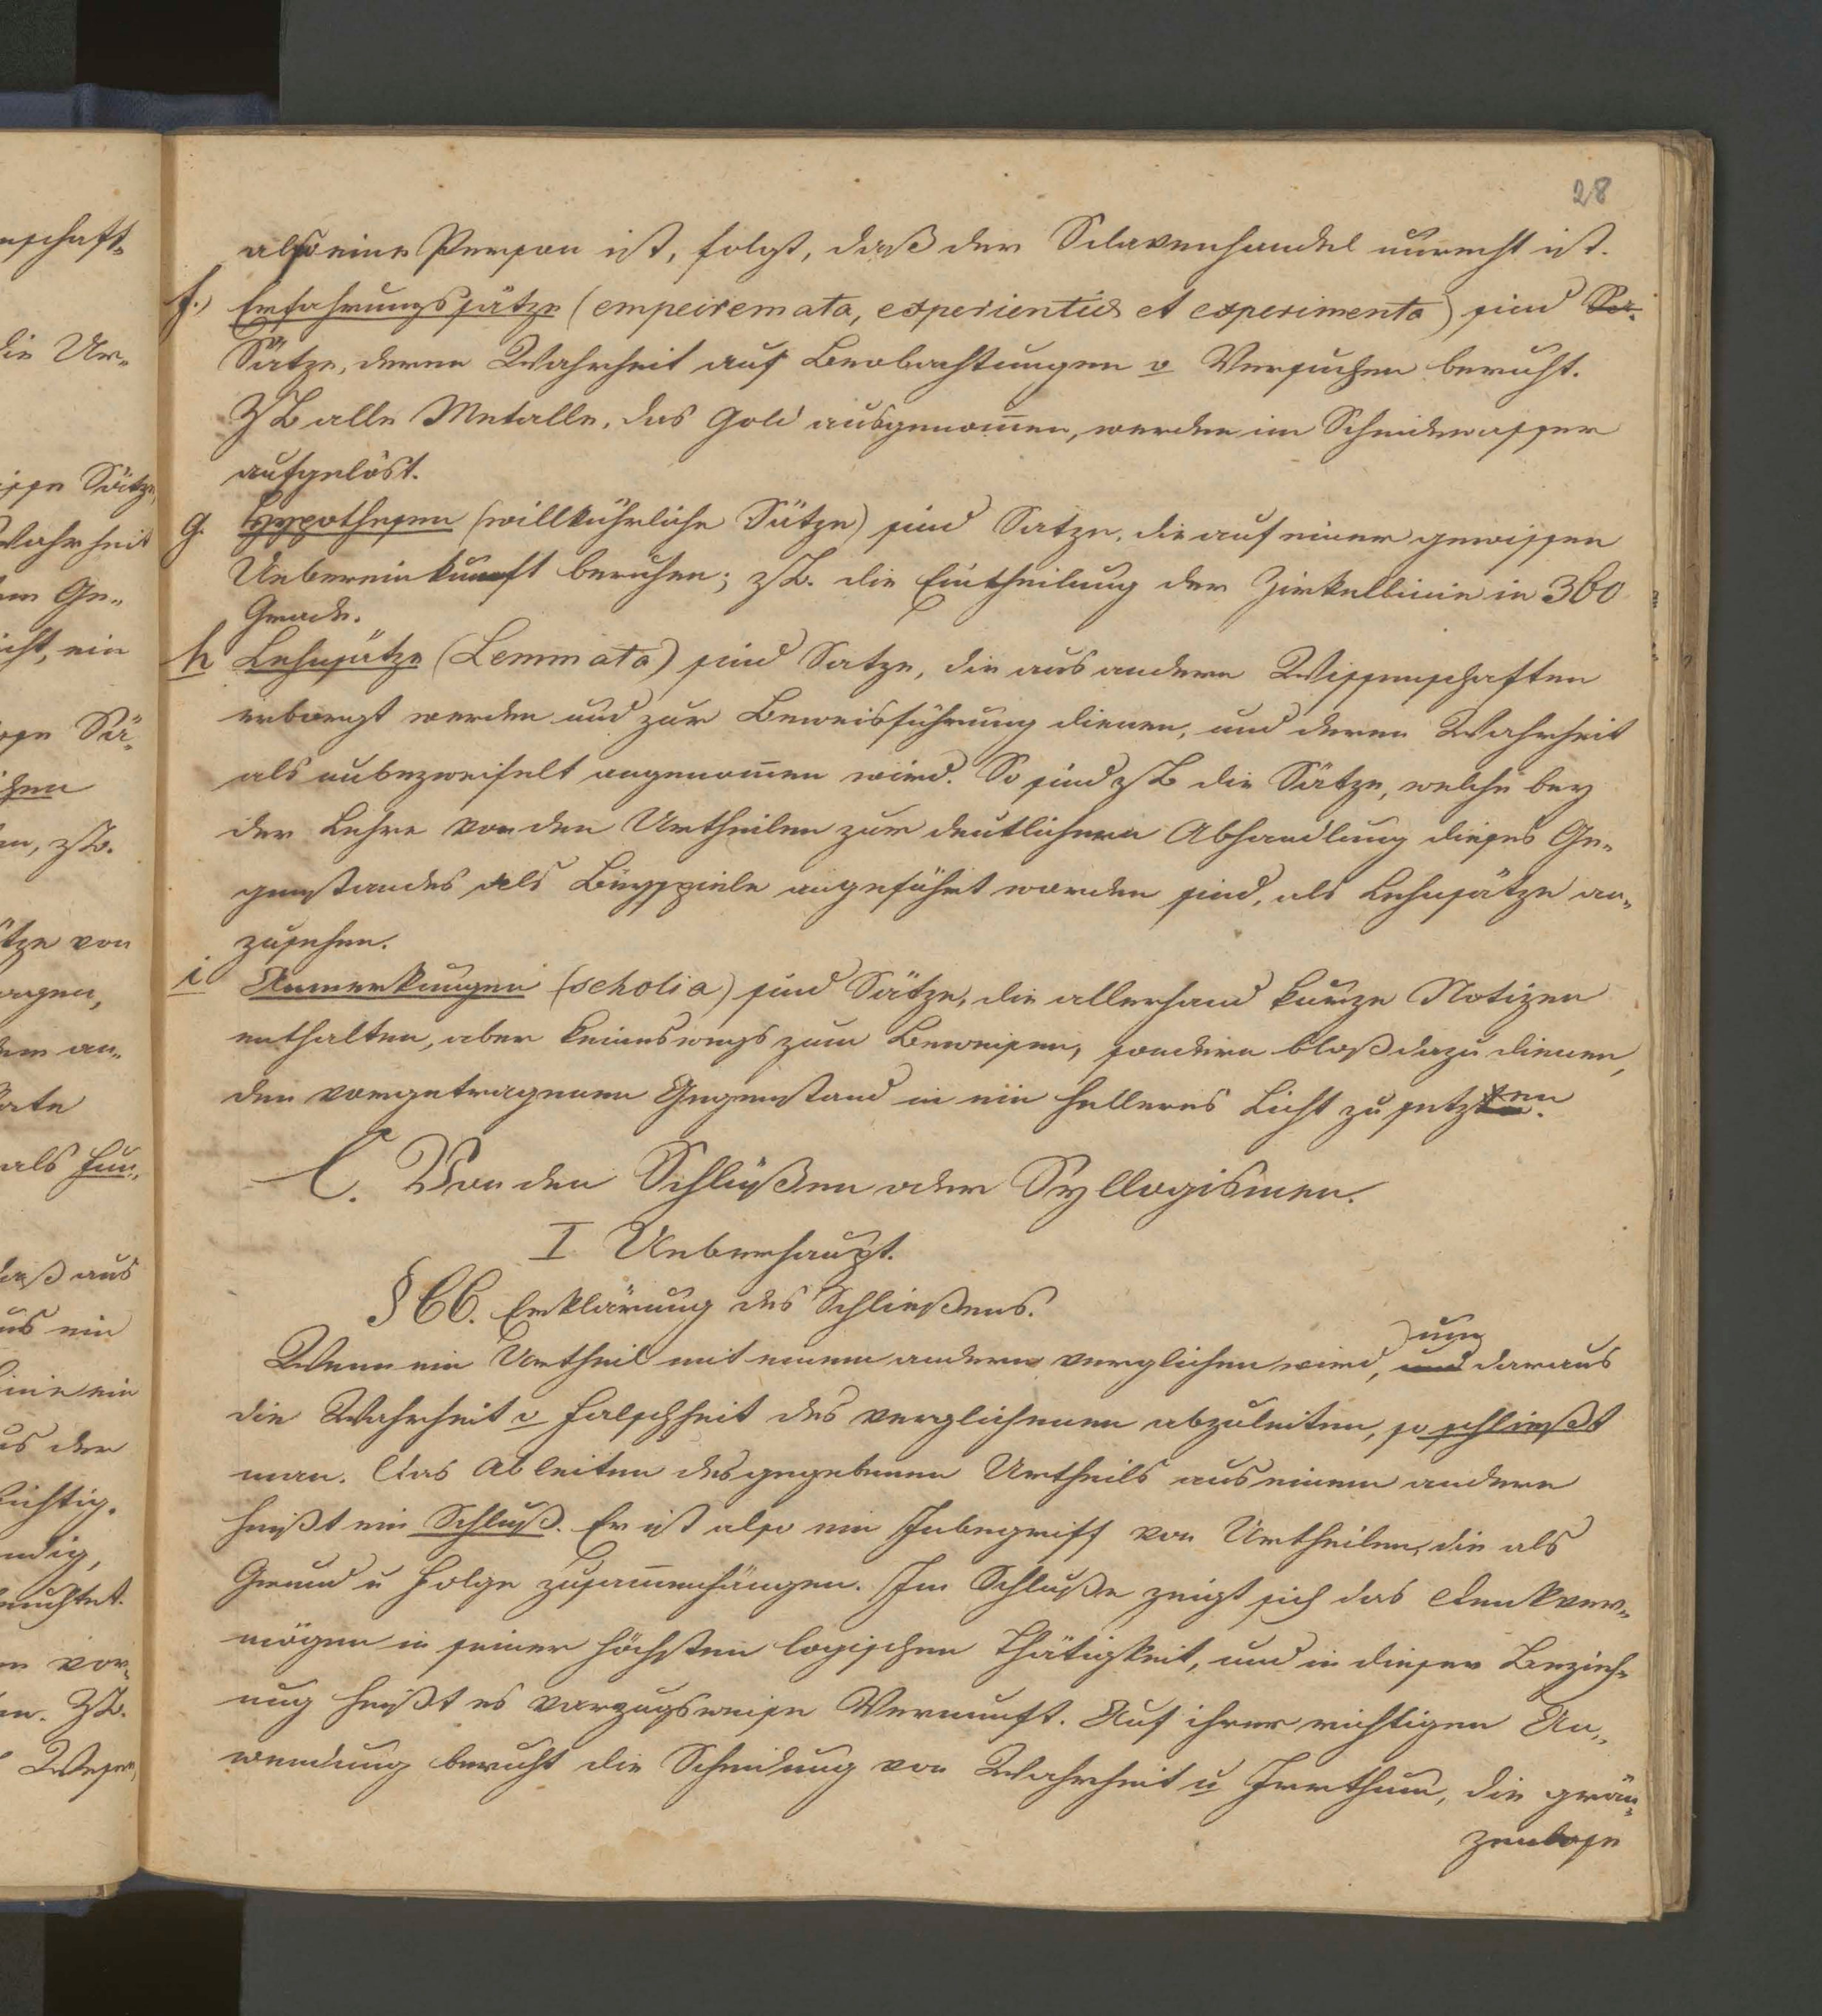 28
also eine Person ist, folgt, daß der Sclavenhandel unrecht ist.
f.) Erfahrungssätze (empeiremata, experientiae et experimenta) sind Sä-
Sätze, deren Wahrheit auf Beobachtungen o Versuchen beruht.
ZB alle Metalle, das Gold ausgenom̄en, werden im Scheidewasser
aufgelöst.
g. Hypothesen (willkührliche Sätze) sind Satze, die auf einer gewissen
Uebereinkunft beruhen; zB. die Eintheilung der Zirkellinie in 360
Grade.
h Lehnsätze (Lemmata) sind Satze, die aus andern Wissenschaften
erborgt werden und zur Beweisführung dienen, und deren Wahrheit
als unbezweifelt angenom̄en wird. So sind zB die Sätze, welche bey
der Lehre von den Urtheilen zur deutlichern Abhandlung dieses Ge-
genstandes als Beyspiele angeführt worden sind, als Lehnsätze an-
zusehen.
i Anmerkungen (scholia) sind Sätze, die allerhand kurze Notizen
enthalten, aber keineswegs zum Beweisen, sondern bloß dazu dienen,
den vorgetragenen Gegenstand in ein helleres Licht zu setzen.
C. Von den Schlüßen oder Syllogismen.
I Ueberhaupt.
§ 66. Erklärung des Schließens.
um
Wenn ein Urtheil mit einem andern verglichen wird, und daraus
die Wahrheit o Falschheit des verglichenen abzuleiten, so schließt
man. Das Ableiten des gegebenen Urtheils aus einem andern
heißt ein Schluß. Er ist also ein Inbegriff von Urtheilen, die als
Grund u Folge zusam̄enhängen. Im Schluße zeigt sich das Denkver-
mögen in seiner höchsten logischen Thätigkeit, und in dieser Bezieh-
ung heißt es vorzugsweise Vernunft. Auf ihrer richtigen An-
wendung beruht die Scheidung von Wahrheit u Irrthum, die grän-
zenlose